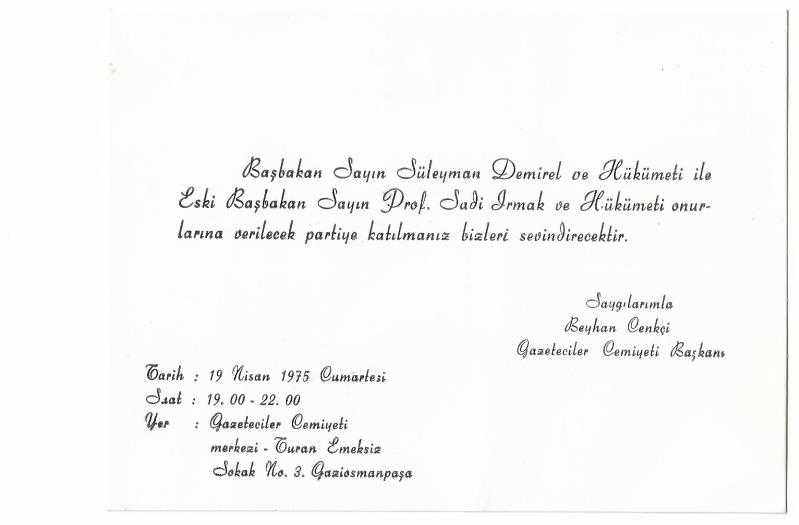 Başbakan Sayın Süleyman Demirel ve Hükümeti ile
Eski Başbakan Sayın Prof. Sadi Irmak ve Hükümeti onur-
larına verilecek partiye katılmanız bizleri sevindirecektir.
Saygılarımla
Beyhan Cenkçi
Gazeteciler Cemiyeti Başkanı
Tarih : 19 Nisan 1975 Cumartesi
Saat : 19.00 - 22.00
Yer : Gazeteciler Cemiyeti
merkezi - Turan Emeksiz
Sokak No. 3. Gaziosmanpaşa